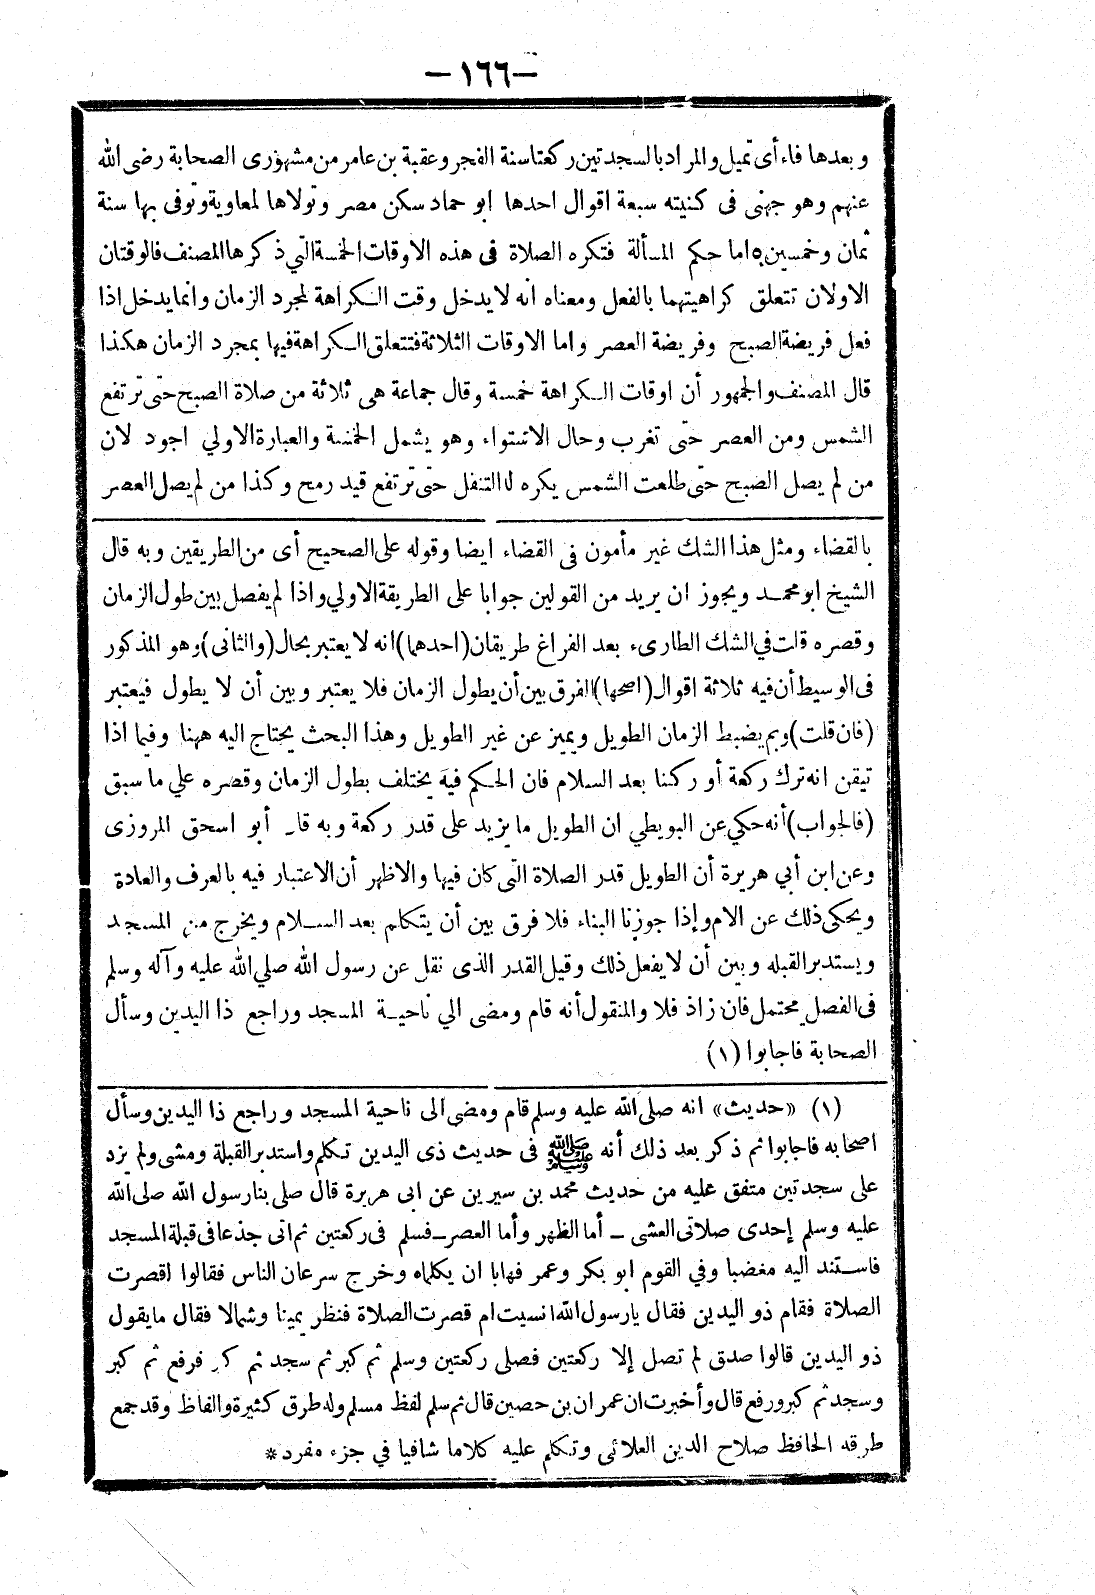 — ١٦٦ —
وبعدها فاء أى تميل والمراد بالسجدتين ركعتا سنة الفجر وعقبة بن عامر من مشهورى الصحابة رضى الله
عنهم وهو جهنى فى كنيته سبعة اقوال احدها ابو حماد سكن مصر وتولاها لمعاوية وتوفى بها سنة
ثمان وخمسين ٥ اما حكم المسألة فتكره الصلاة فى هذه الاوقات الخمسة التي ذكرها المصنف فالوقتان
الاولان تتعلق كراهيتهما بالفعل ومعناه انه لا يدخل وقت الكراهة لمجرد الزمان وانما يدخل اذا
فعل فريضة الصبح وفريضة العصر واما الاوقات الثلاثة فتتعلق الكراهة فيها بمجرد الزمان هكذا
قال المصنف والجمهور أن اوقات الكراهة خمسة وقال جماعة هى ثلاثة من صلاة الصبح حتى ترتفع
الشمس ومن العصر حتى تغرب وحال الاستواء وهو يشمل الخمسة والعبارة الاولي اجود لان
من لم يصل الصبح حتى طلعت الشمس يكره له التنفل حتى ترتفع قيد رمح وكذا من لم يصل العصر
بالقضاء ومثل هذا الشك غير مأمون فى القضاء ايضا وقوله على الصحيح أى من الطريقين وبه قال
الشيخ ابو محمد ويجوز ان يريد من القولين جوابا على الطريقة الاولي واذا لم يفصل بين طول الزمان
وقصره قلت في الشك الطارىء بعد الفراغ طريقان (احدهما) انه لا يعتبر بحال (والثانى) وهو المذكور
فى الوسيط أن فيه ثلاثة اقوال (اصحها) الفرق بين أن يطول الزمان فلا يعتبر وبين أن لا يطول فيعتبر
(فان قلت) وبم يضبط الزمان الطويل ويميز عن غير الطويل وهذا البحث يحتاج اليه ههنا وفيما اذا
تيقن انه ترك ركعة أو ركنا بعد السلام فان الحكم فيه يختلف بطول الزمان وقصره علي ما سبق
(فالجواب) أنه حكي عن البويطي ان الطويل ما يزيد على قدر ركعة وبه قال أبو اسحق المروزى
وعن ابن أبي هريرة أن الطويل قدر الصلاة التى كان فيها والاظهر أن الاعتبار فيه بالعرف والعادة
ويحكى ذلك عن الام وإذا جوزنا البناء فلا فرق بين أن يتكلم بعد السلام ويخرج من المسجد
ويستدبر القبله وبين أن لا يفعل ذلك وقيل القدر الذى نقل عن رسول الله صلي الله عليه وآله وسلم
فى الفصل محتمل فان زاذ فلا والمنقول أنه قام ومضى الي ناحية المسجد وراجع ذا اليدين وسأل
الصحابة فاجابوا (١)
(١) «حديث» انه صلى الله عليه وسلم قام ومضى الى ناحية المسجد وراجع ذا اليدين وسأل
اصحابه فاجابوا ثم ذكر بعد ذلك أنه ﷺ فى حديث ذى اليدين تكلم واستدبر القبلة ومشى ولم يزد
على سجدتين متفق عليه من حديث محمد بن سيرين عن ابى هريرة قال صلى بنا رسول الله صلى الله
عليه وسلم إحدى صلاتى العشى ــ أما الظهر وأما العصر ــ فسلم فى ركعتين ثم اتى جذعا فى قبلة المسجد
فاستند اليه مغضبا وفي القوم ابو بكر وعمر فهابا ان يكلماه وخرج سرعان الناس فقالوا اقصرت
الصلاة فقام ذو اليدين فقال يا رسول الله انسيت ام قصرت الصلاة فنظر يمينا وشمالا فقال ما يقول
ذو اليدين قالوا صدق لم تصل إلا ركعتين فصلى ركعتين وسلم ثم كبر ثم سجد ثم كبر فرفع ثم كبر
وسجد ثم كبر ورفع قال وأخبرت ان عمران بن حصين قال ثم سلم لفظ مسلم وله طرق كثيرة والفاظ وقد جمع
طرقه الحافظ صلاح الدين العلائى وتكلم عليه كلاما شافيا في جزء مفرد *